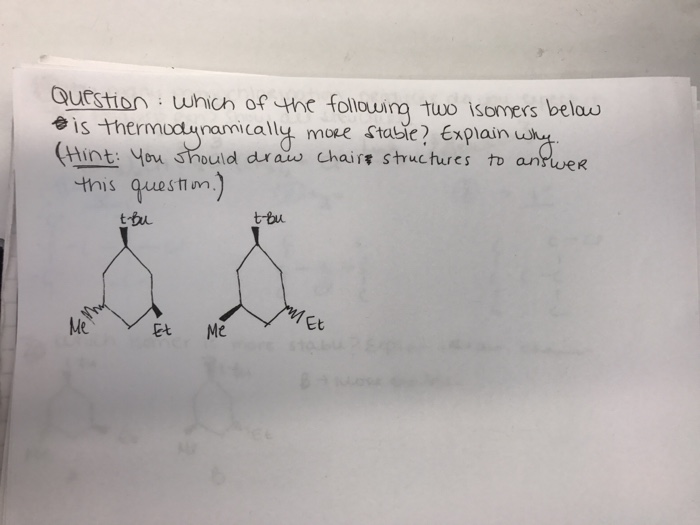 Question: which of the following two isomers below
is thermodynamically more stable? Explain why.
(Hint: You should draw chair structures to answer
this question.)
t-bu t-bu
Me Et Me Et